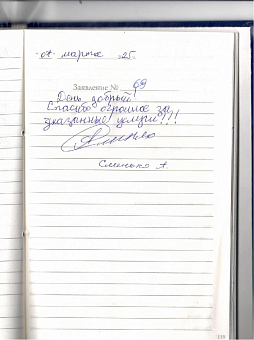 01 марта 25.
Заявление № 69
День добрый!
Спасибо огромное за
оказанные услуги!!!